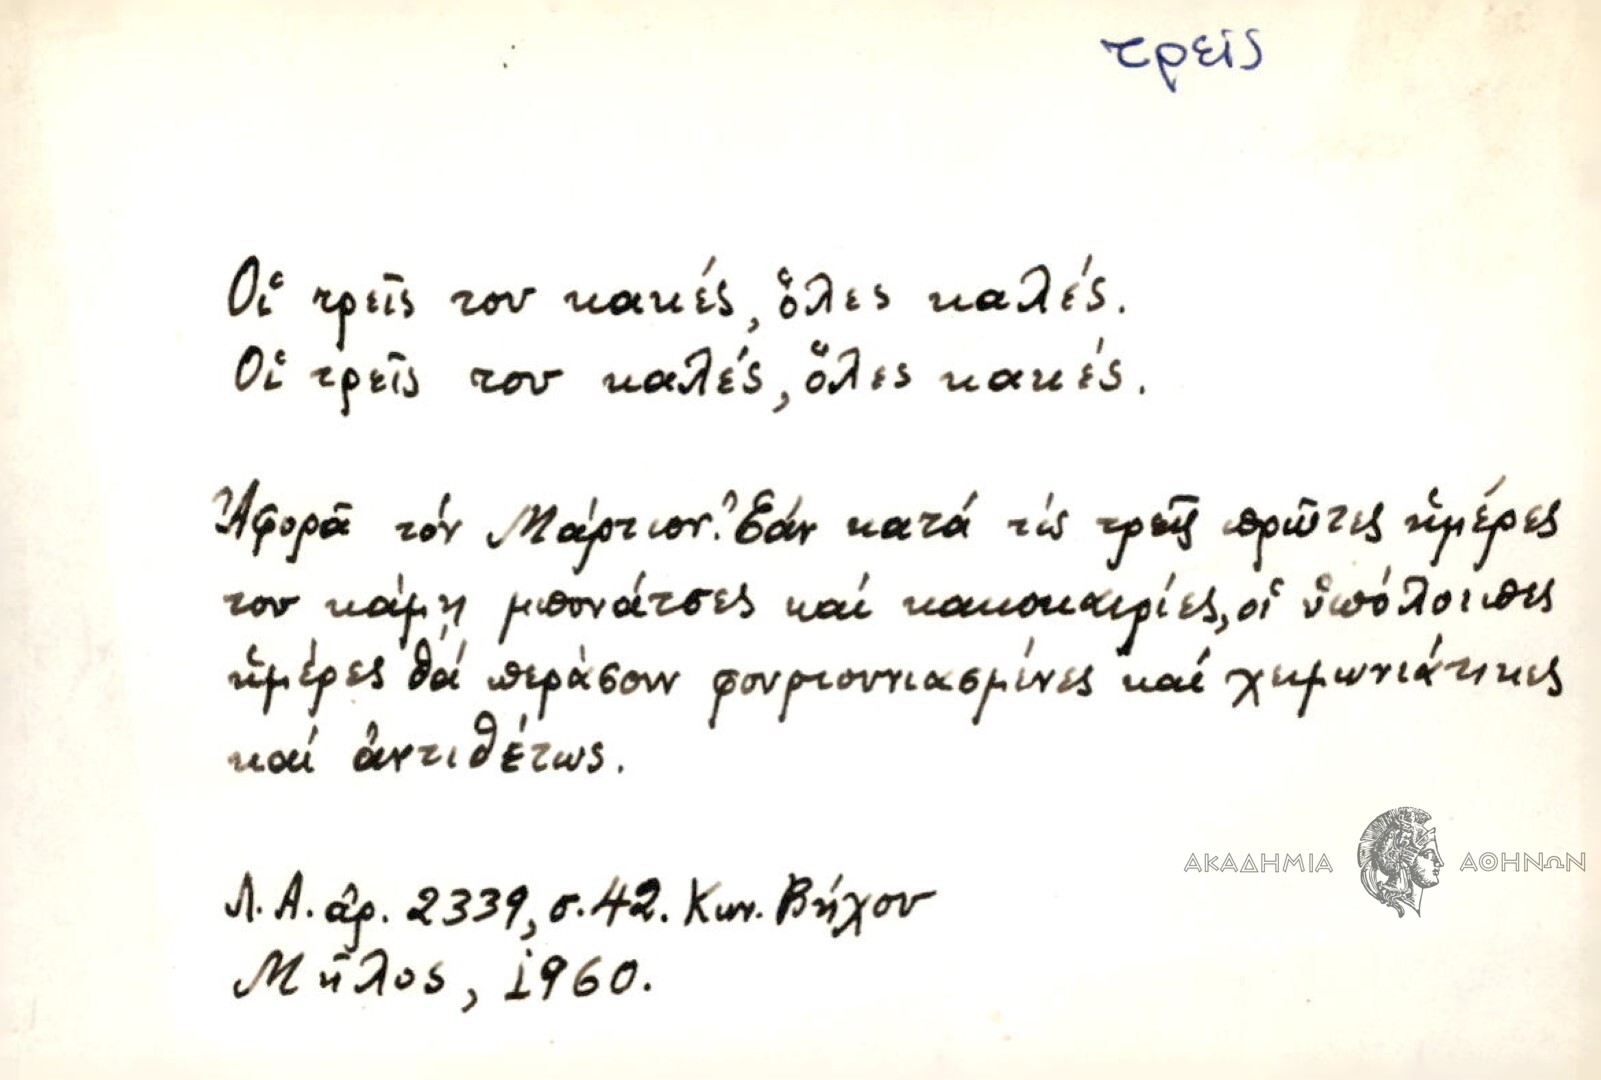 τρεῖς
Οἱ τρεῖς του κακές, ὅλες καλές.
Οἱ τρεῖς του καλές, ὅλες κακές.
Ἀφορᾶ τόν Μάρτιον. Ἐάν κατά τίς τρεῖς πρῶτες ἡμέρες
του κάμη μπονάτσες καί κακοκαιρίες, οἱ ὑπόλοιπες
ἡμέρες θά περάσουν φουρτουνιασμένες καί χειμωνιάτικες
καί ἀντιθέτως.
Λ.Α. ἀρ. 2339, σ. 42. Κων. Βήχου
Μῆλος, 1960.
ΑΚΑΔΗΜΙΑ ΑΘΗΝΩΝ